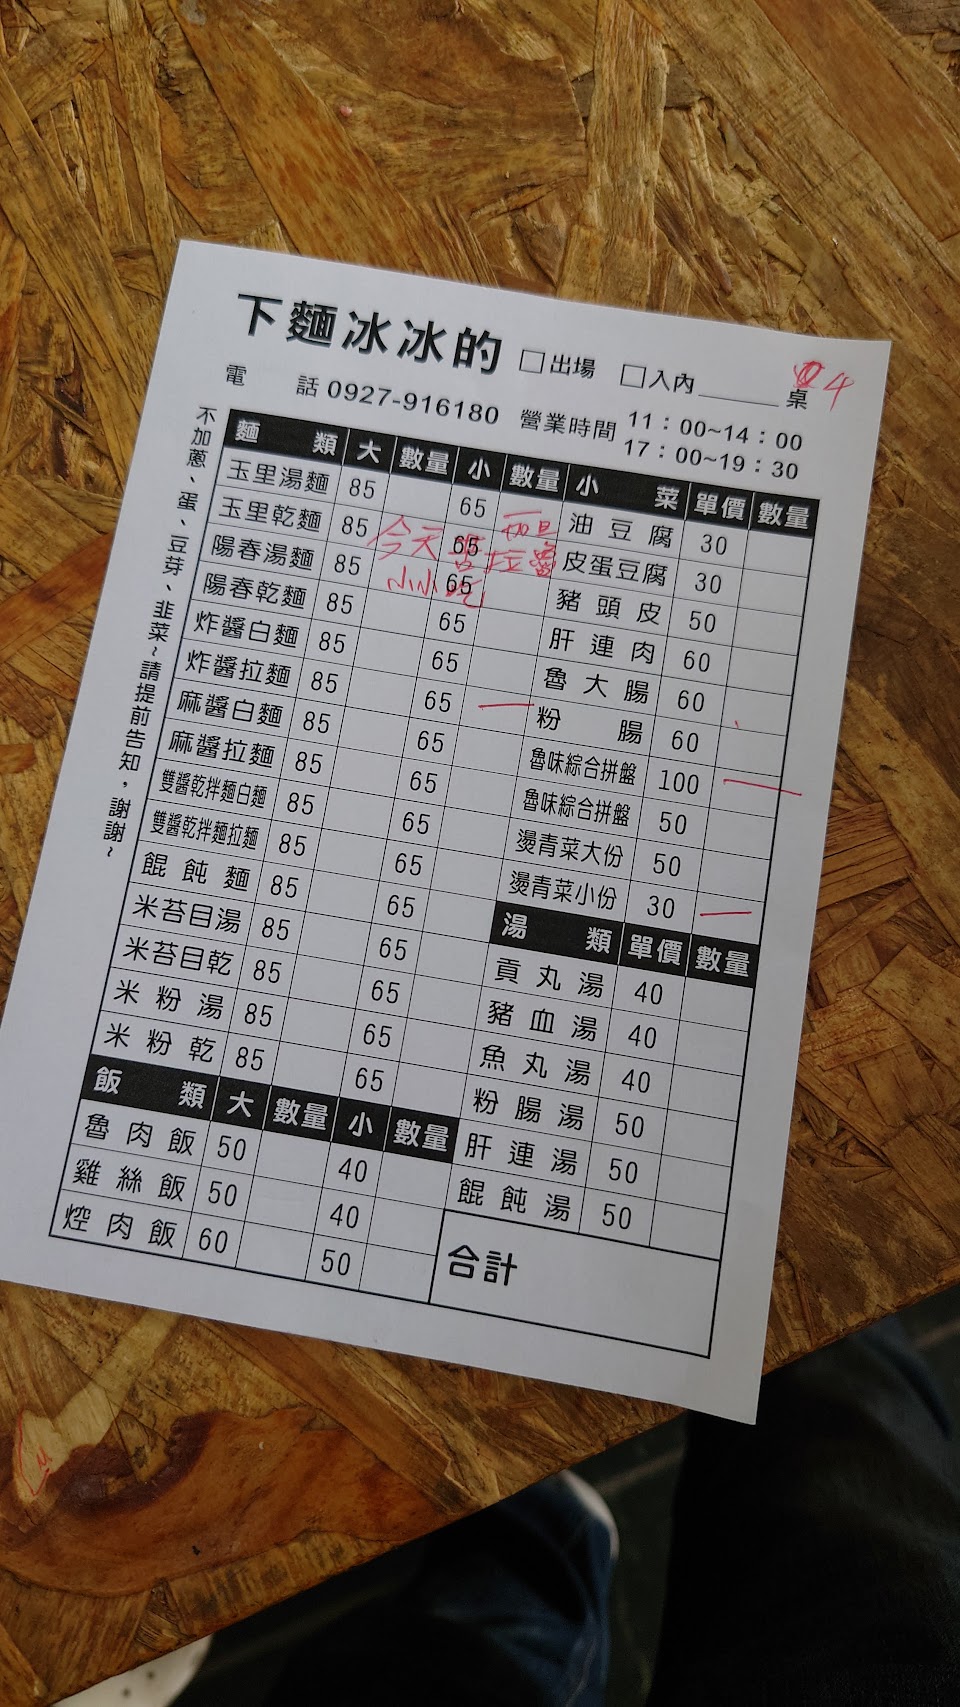 下麵冰冰的 □出場 □入內______桌 4
電 話 0927-916180 營業時間 11：00~14：00
17：00~19：30
不加蔥、蛋、豆芽、韭菜~請提前告知，謝謝~
麵 類 大 數量 小 數量
玉里湯麵 85 65
玉里乾麵 85 65
陽春湯麵 85 65
陽春乾麵 85 65
炸醬白麵 85 65
炸醬拉麵 85 65 一
麻醬白麵 85 65
麻醬拉麵 85 65
雙醬乾拌麵白麵 85 65
雙醬乾拌麵拉麵 85 65
餛飩麵 85 65
米苔目湯 85 65
米苔目乾 85 65
米粉湯 85 65
米粉乾 85 65
今天
小小吃
飯 類 大 數量 小 數量
魯肉飯 50 40
雞絲飯 50 40
焢肉飯 60 50
小 菜 單價 數量
油豆腐 30
皮蛋豆腐 30
豬頭皮 50
肝連肉 60
魯大腸 60
粉腸 60
魯味綜合拼盤 100 一
魯味綜合拼盤 50
燙青菜大份 50
燙青菜小份 30 一
湯 類 單價 數量
貢丸湯 40
豬血湯 40
魚丸湯 40
粉腸湯 50
肝連湯 50
餛飩湯 50
合計